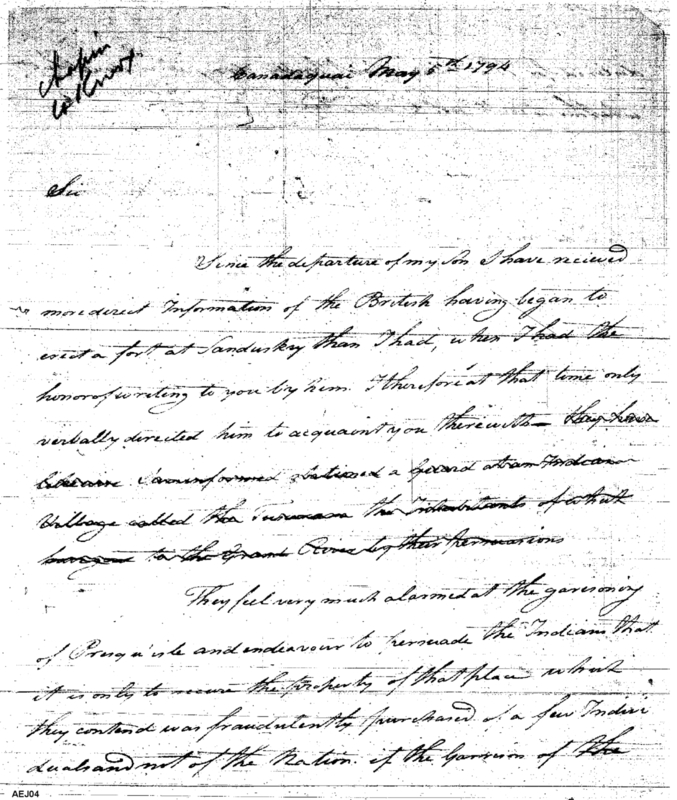 Chapin
to Knox.
Canadaquai May 5th 1794
Sir
Since the departure of my Son I have recieved
more direct Information of the British having began to
erect a fort at Sandusky than I had, when I had the
honor of writing to you by him. I therefore at that time only
verbally directed him to acquaint you therewith — they have
I am informed stationed a Guard at an Indian
Village called the the Inhabitants of which
have gone to the Grand River by their persuasions
They feel very much alarmed at the garisoning
of Presqu'isle and endeavour to persuade the Indians that
it is only to secure the property of that place which
they contend was fraudulently purchased of a few Indivi
duals and not of the Nation. if the Garrison of the
AEJ04